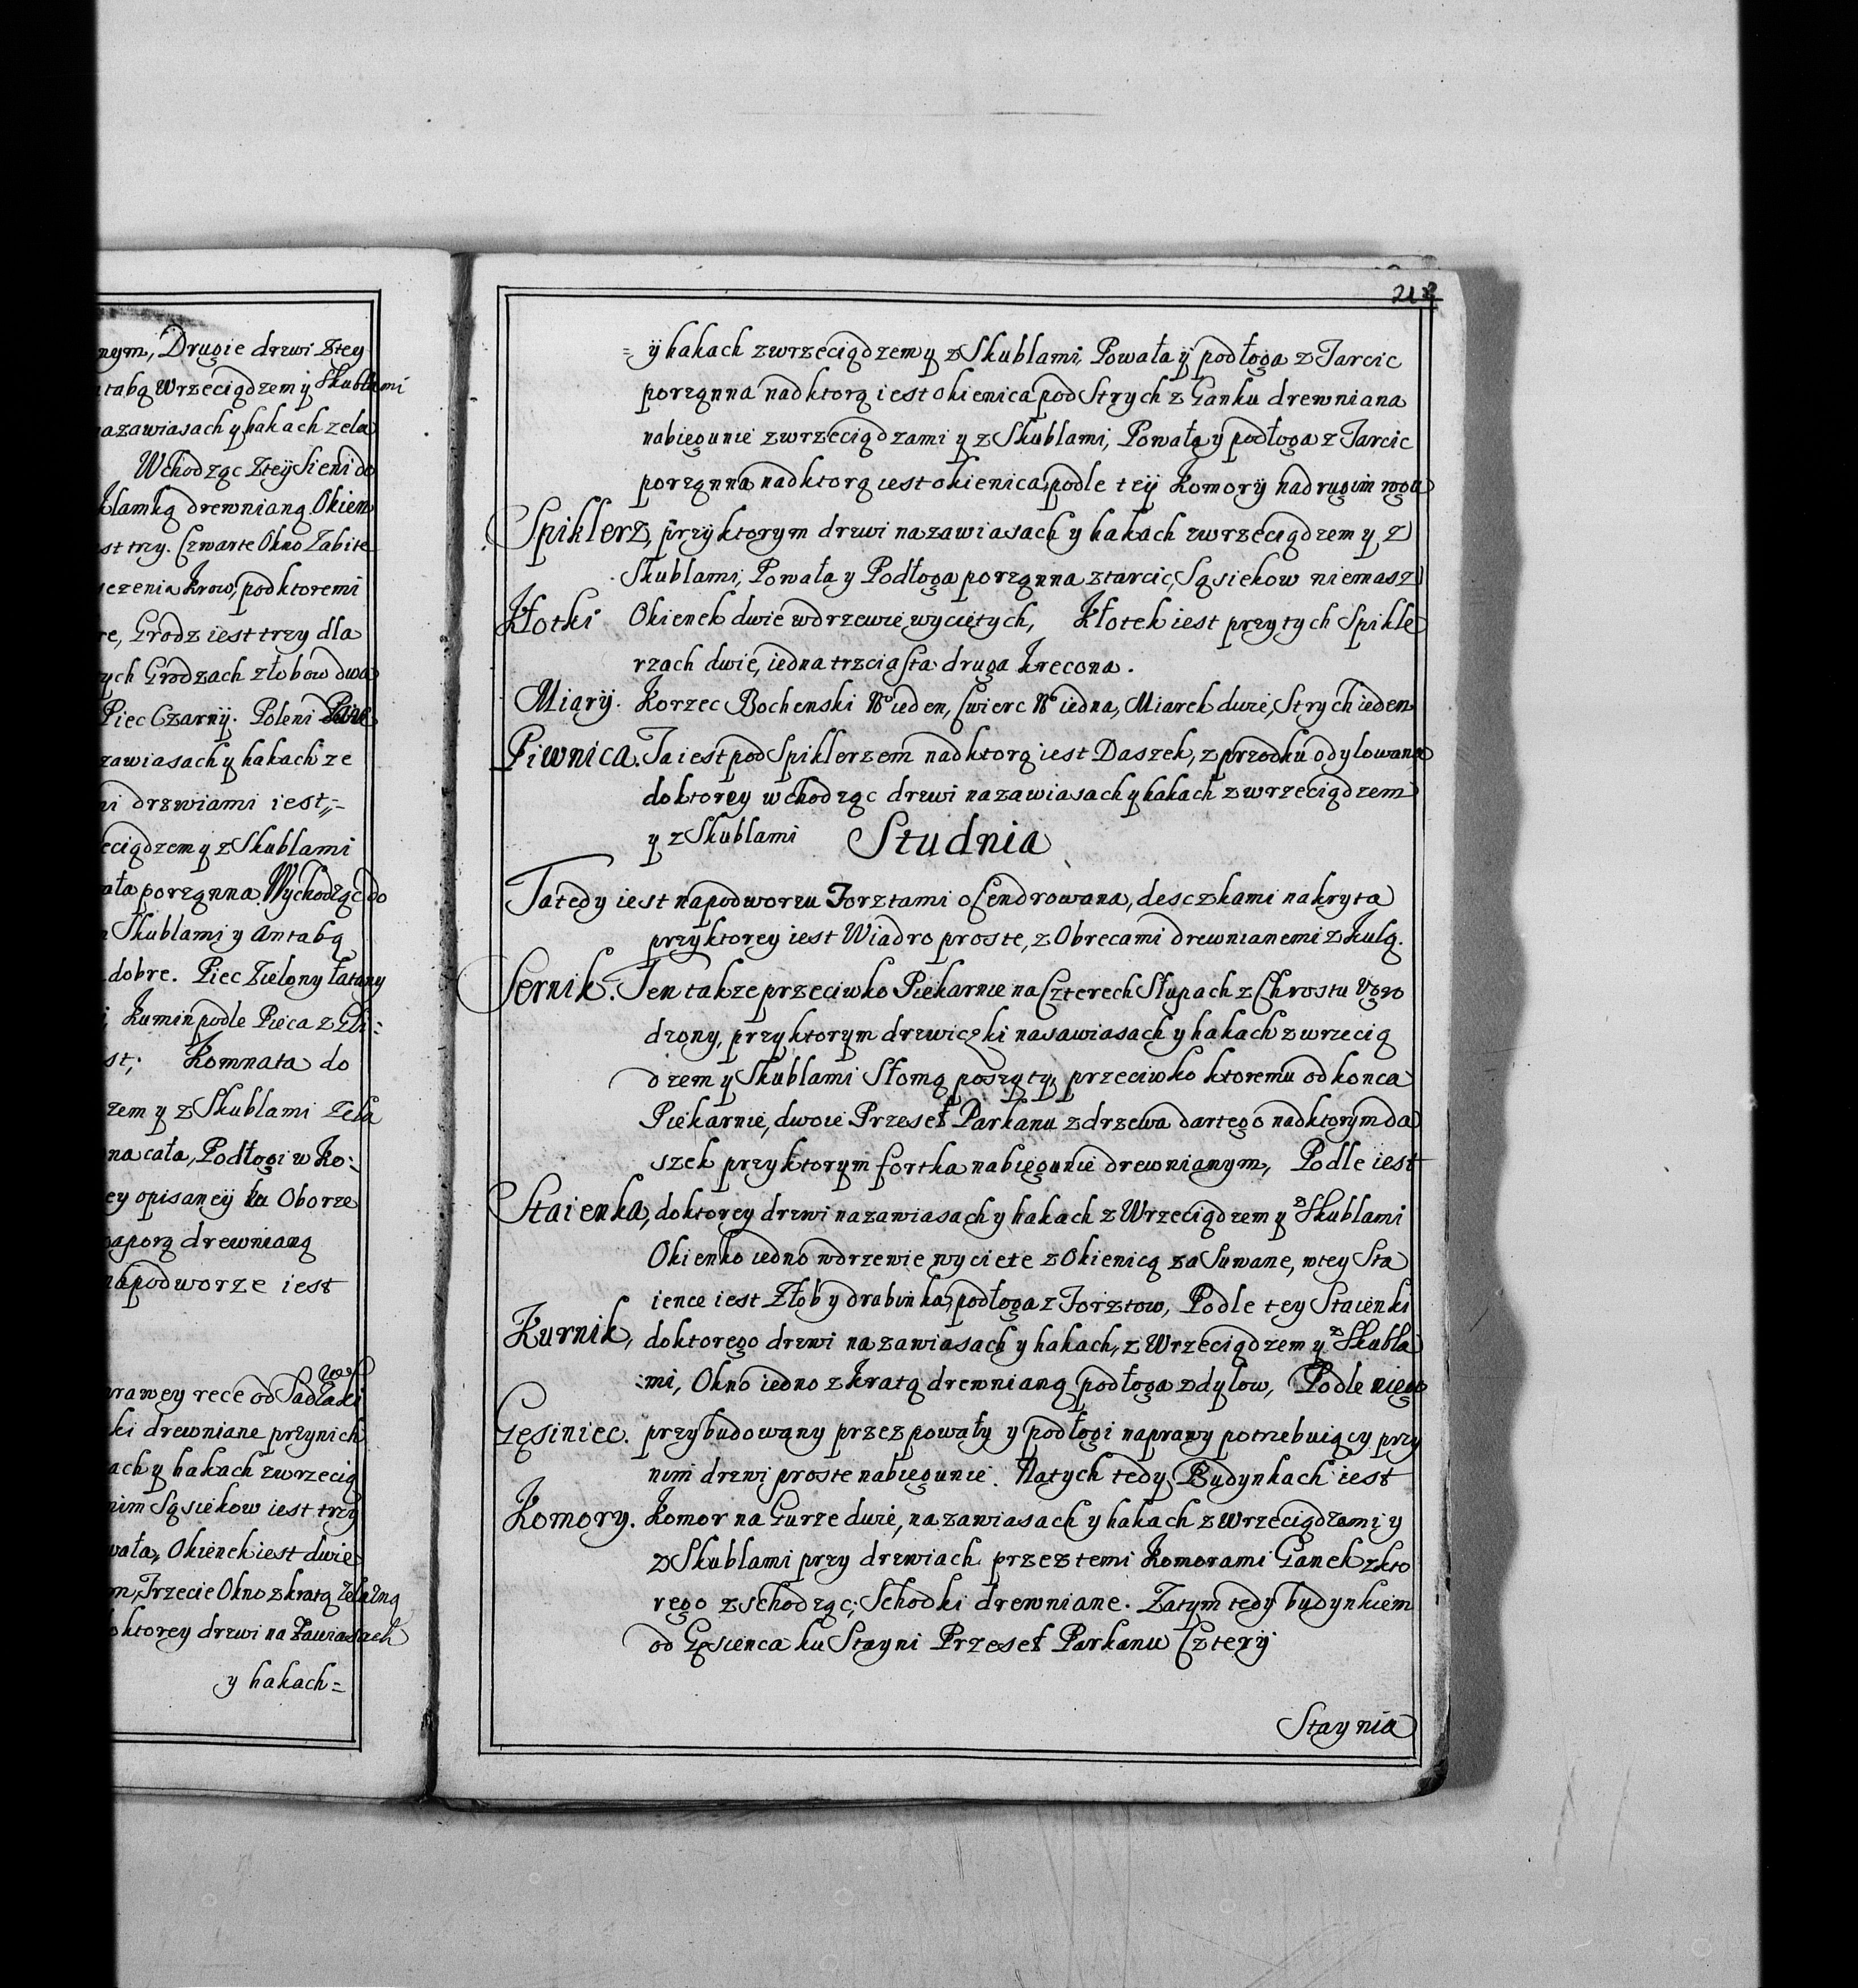 nym, Drugie drzwi Ztey
ntabą Wrzeciądzem ÿ Skublami
nazawiasach y hakach zela
Wchodząc Zteÿ Sieni do
Klamką drewnianą Okien
st trzy. Czwarte Okno Zabite
czenia Krow, pod ktoremi
re, Grodz iest trzy dla
ych Grodzach złobow dwa
Piec Czarnÿ. Poleni
zawiasach y hakach ze
i drzwiami iest
eciądzem y z Skublami
ała porząnna Wychodząc do
Skublami y Antabą
dobre. Piec Zielony łatany
Kumin podle Pieca z Gli:
st; Komnata do
zem y z Skublami Zela
na cała, Podłogi w Ko:
ey opisaneÿ ku Oborze
paporą drewnianą
napodworze iest
w
prawey rece od Sadlaki
ki drewniane przynich
ach y hakach zwrzecią
nim Sąsiekow iest trzy
wała, Okienek iest dwie
m, Trzecie Okno z kratą żelazną
doktorey drzwi na Zawiasach
y hakach=
218
= ÿ hakach zwrzeciądzem y z Skublami, Powała ÿ podłoga z Tarcic
porząnna nad ktorą iest okienica pod Strych z Ganku drewniana
nabiegunie zwrzeciądzami y z Skublami, Powała y podłoga z Tarcic
porząnna nad ktorą iest okienica, podle teÿ Komorÿ nadrugim rogu
Spiklerz, przyktorym drzwi nazawiasach y hakach zwrzeciądzem y z
Skublami, Powała y Podłoga porząnna ztarcic, Sąsiekow niemasz
Kłotki Okienek dwie wdrzewie wyciętych, Kłotek iest przy tych Spikle
rzach dwie, iedna trzciasta druga Krecona.
Miarÿ. Korzec Bochenski No ieden, Cwierc No iedna, Miarek dwie, Strych ieden
Piwnica. Ta iest pod Spiklerzem nad ktorą iest Daszek, z przodku odylowana
doktorey wchodząc drzwi nazawiasach y hakach zwrzeciądzem
y z Skublami Studnia
Ta tedy iest napodworzu Forztami oCendrowana, desczkami nakryta
przyktorey iest Wiadro proste, z Obrecami drewnianemi z Kulą.
Sernik. Ten takze przeciwko Piekarnie na Czterech Słupach z Chrostu Vgro
dzony, przyktorym drzwiczki nasawiasach y hakach zwrzecią
dzem y Skublami Słomą poszyty, przeciwko ktoremu od konca
Piekarnie, dwoie Przeseł Parkanu zdrzewa dartego nad ktorym da
szek przyktorym fortka nabiegunie drewnianym, Podle iest
Staienka, doktorey drzwi nazawiasach y hakach z Wrzeciądzem y z Skublami
Okienko iedno wdrzewie wyciete z Okienicą zaSuwane, wtey Sta
ience iest Złob y drabinka, podłoga z Forztow, Podle tey Staienki
Kurnik, doktorego drzwi nazawiasach y hakach, z Wrzeciądzem y z Skubla
:mi, Okno iedno z kratą drewnianą podłoga zdylow, Podle niego
Gęsiniec. przybudowany przez powały y podłogi naprawy potrzebuiący przy
nim drzwi proste nabiegunie. Natych tedy Budynkach iest
Komory. Komor na Gurze dwie, nazawiasach y hakach z Wrzeciądzami y
z Skublami przy drzwiach przeztemi Komorami Ganek zkto
rego zschodząc, Schodki drewniane. Zatym tedy budynkiem
od Gęsienca ku Stayni Przeseł Parkanu Czterÿ
Staynia